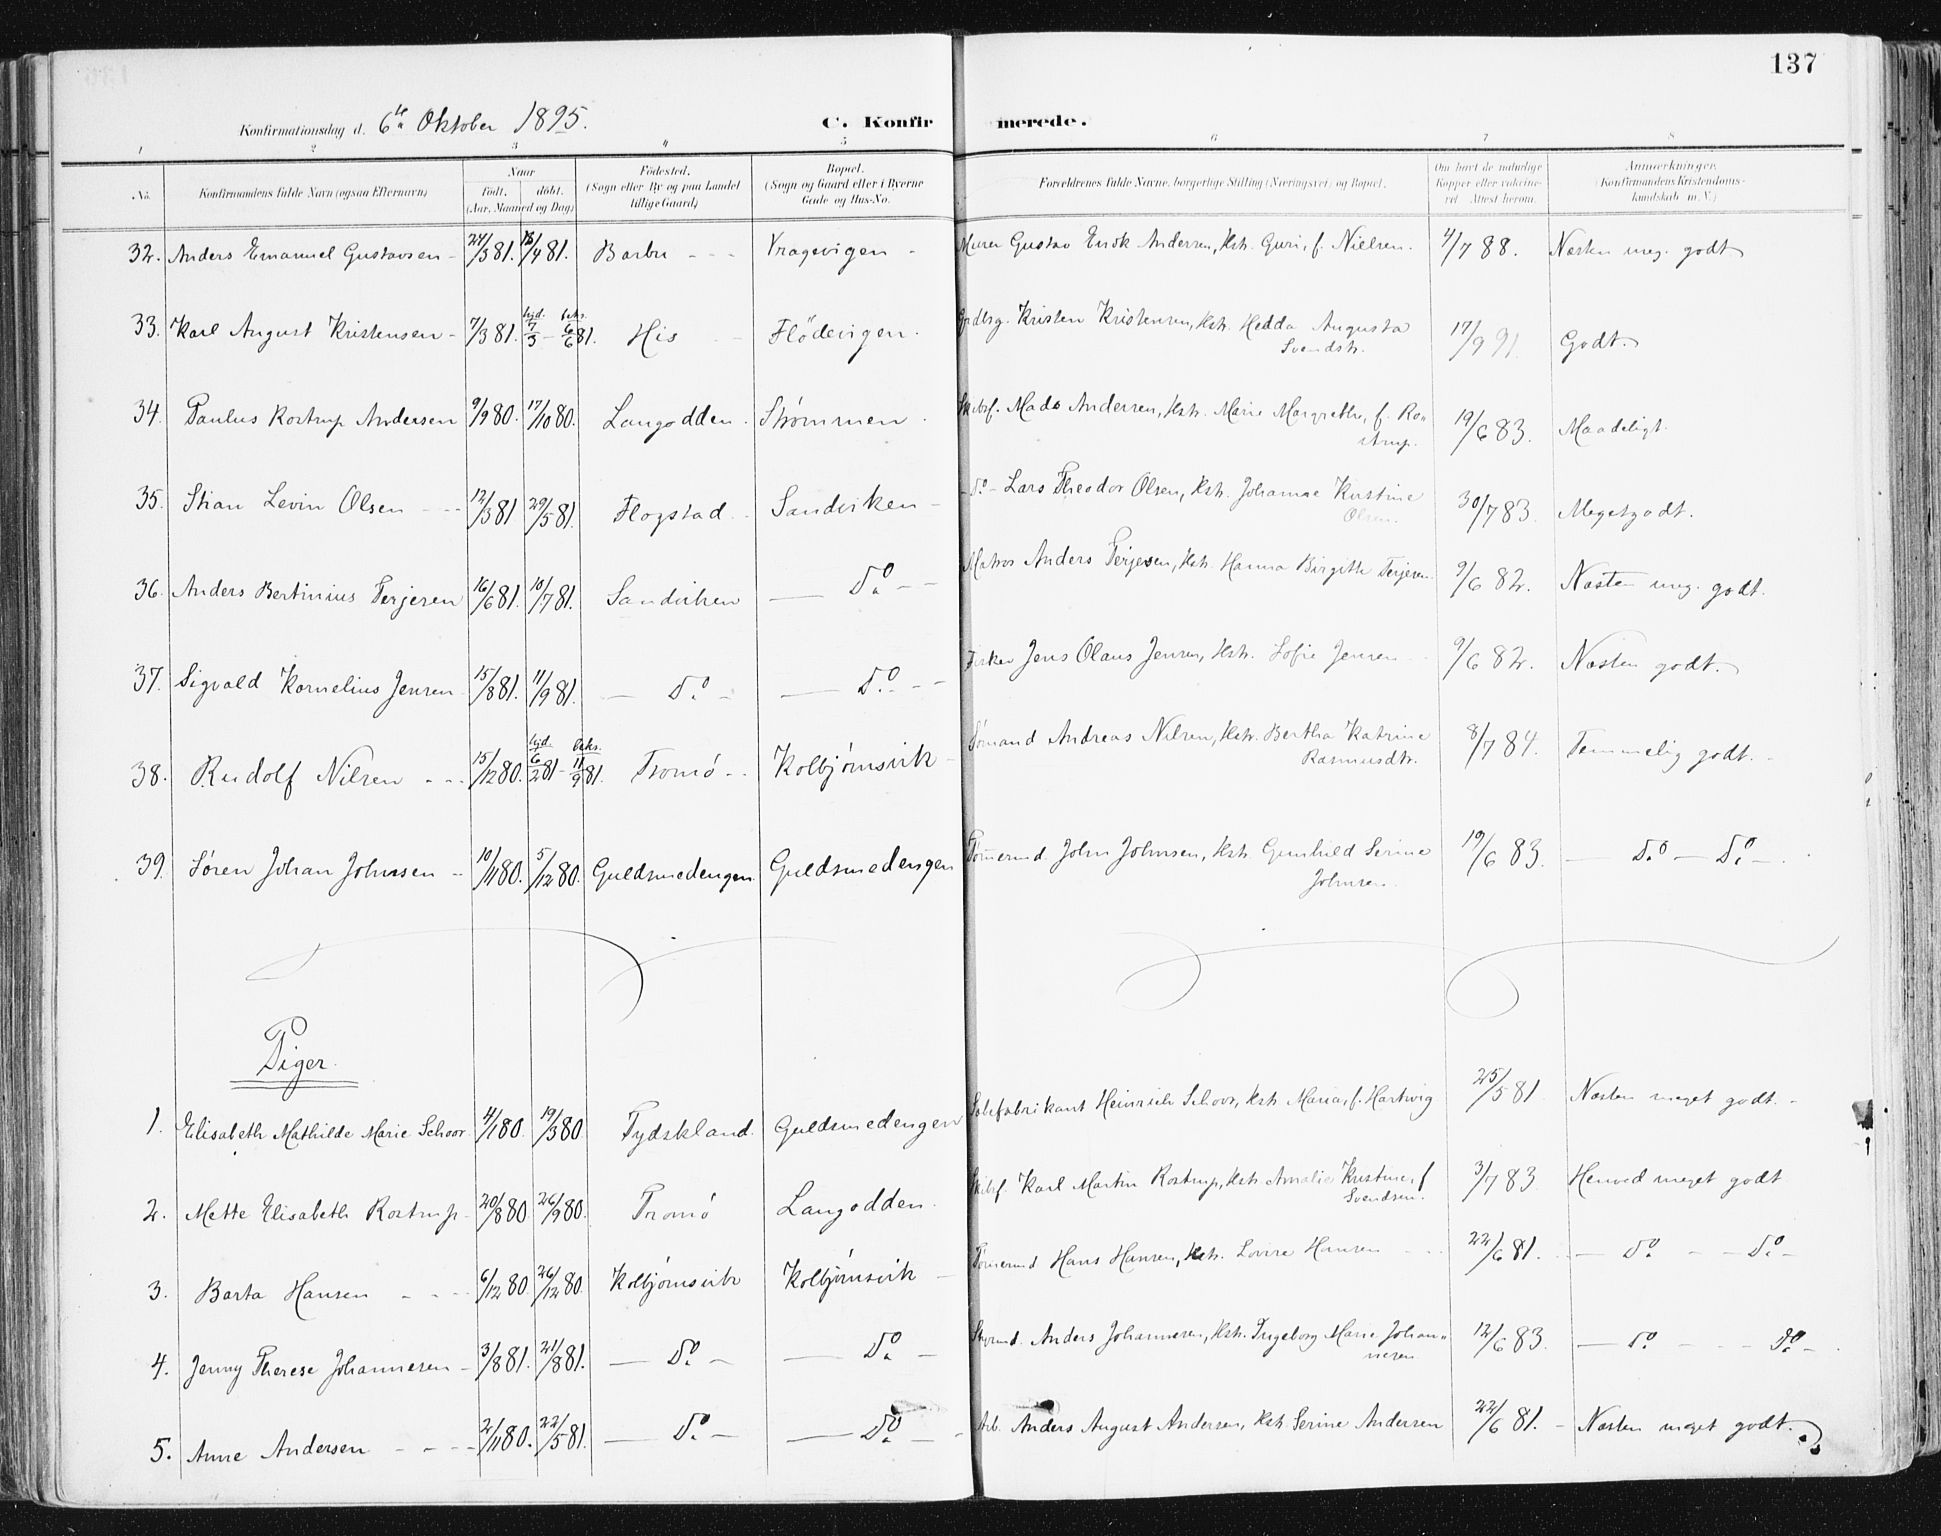 137
Konfirmationsdag d. 6te Oktober 1895. C. Konfirmerede.
1 2 3 4 5 6 7 8
No. Konfirmandens fulde Navn (ogsaa Efternavn) Naar født. døbt. (Aar, Maaned og Dag) Fødested. (Sogn eller By og paa Landet tillige Gaard) Bopæl. (Sogn og Gaard eller i Byerne Gade og Hus-No. Forældrenes fulde Navne, borgerlige Stilling (Næringsvei) og Bopæl. Om havt de naturlige Kopper eller vaccineret. Attest herom. Anmærkninger. (Konfirmandens Kristendomskundskab m. V.)
32. Anders Emanuel Gustavsen - 24/3 81. /4 81. Barbu - - - Vragevigen - Murer Gustav Enok Andersen, Hstr. Guri, f. Nielsen. 4/7 88. Næsten meg. godt
33. Karl August Kristensen - 7/3 81. hjd. 7/3 - bekr. 6/6 81. His - Flödevigen. Kristen Kristensen, Hstr. Hedda Augusta
Svendstr. 17/9 91. Godt.
34. Paulus Rostrup Andersen 9/9 80. 17/10 80. Langodden. Strømmen. Skibsf. Mads Andersen, Hstr. Marie Margrethe, f. Ro„
strup. 19/6 83. Maadeligt.
35. Stian Levin Olsen - - - 12/3 81 29/5 81. Flogstad. Sandviken - - Do - Lars Theodor Olsen, Hstr. Johanne Kirstine
Olsen. 30/7 83. Megetgodt.
36. Anders Bertinius Terjesen 16/6 81. 10/7 81. Sandviken — Do - - Matros Anders Terjesen, Hstr. Hanna Birgitte Terjesen. 9/6 82. Næsten meg. godt.
37. Sigvald Kornelius Jensen 15/8 81. 11/9 81. — Do - — Do - - Fisker Jens Olaus Jensen, Hstr. Sofie Jensen - - 9/6 82. Næsten godt.
38. Rudolf Nilsen - - - 15/12 80. hjd. 6/2 81 - bekr. 11/9 81. Tromø - - Kolbjørnsvik - Sømand Andreas Nilsen, Hstr. Bertha Katrine
Rasmusdtr. 8/7 84. Temmelig godt. -
39. Søren Johan Johnsen - 10/11 80. 5/12 80. Guldsmedengen Guldsmedengen Tømermd. John Johnsen, Hstr. Gunhild Serine
Johnsen. 19/6 83. — Do — Do —
Piger.
1. Elisabeth Mathilde Marie Schoor 4/1 80. 19/3 80 Tydskland. Guldsmedengen Heinrich Schoor, Hstr. Maria, f. Hartwig 25/5 81. Næsten meget godt. -
2. Mette Elisabeth Rostrup - 20/8 80 26/9 80. Tromö Langodden. Skibsf. Karl Martin Rostrup, Hstr. Amalie Kristine, f
Svendsen. 3/7 83. Henved meget godt
3. Barta Hansen - - - 6/12 80. 26/12 80. Kolbjørnsvik Kolbjørnsvik - Tømermd Hans Hansen, Hstr. Lovise Hansen - - 22/6 81. — Do - - Do -
4. Jenny Therese Johannesen - 3/8 81. 21/8 81. — Do - — Do - Styrmd. Anders Johannesen, Hstr. Ingeborg Marie Johan„
nesen 12/6 83. — Do - - - Do -
5. Anne Andersen - - - - 2/11 80. 22/5 81. — Do - — Do - - Arb. Anders August Andersen, Hstr Serine Andersen 22/6 81. - Næsten meget godt.